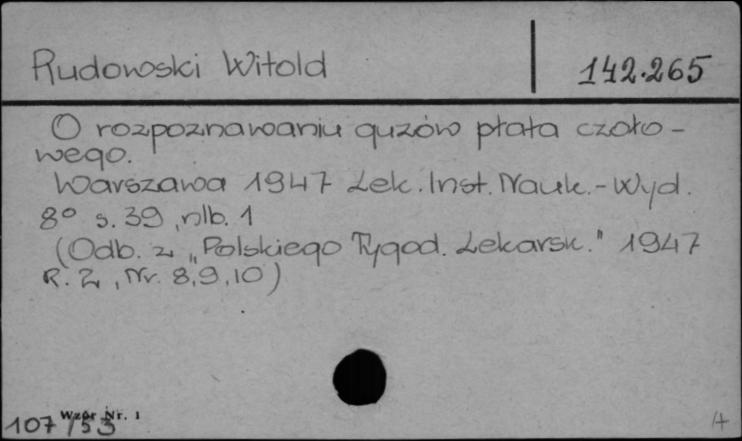 Rudowski Witold
142.265
O rozpoznawaniu guzów płata czoło-
wego.
Warszawa 1947 Lek. Inst. Nauk.-Wyd.
8° s. 39, nlb. 1
(Odb. z „Polskiego Tygod. Lekarsk." 1947
R. 2, Nr. 8, 9, 10)
Wzór Nr. 1
107/53